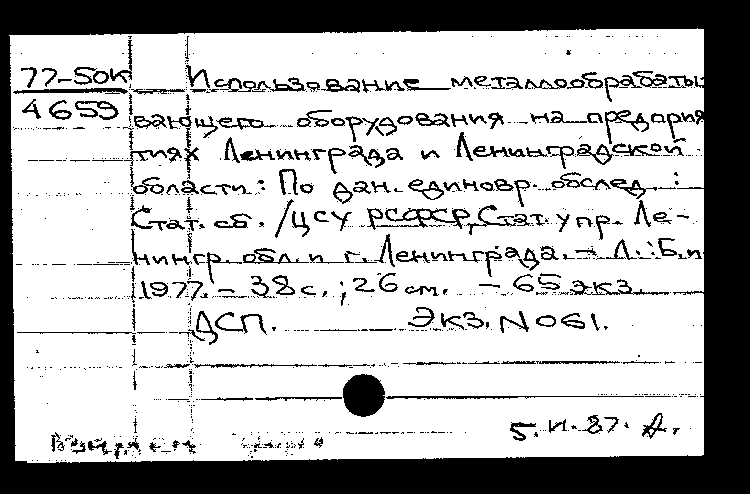 77-50К Использование металлообрабаты-
4659 вающего оборудования на предприя
тиях Ленинграда и Ленинградской
области: По дан. единовр. обслед. :
Стат. сб. /ЦСУ РСФСР, Стат. упр. Ле-
нингр. обл. и г. Ленинграда. - Л. : Б.и
1977. - 38 с. ; 26 см. - 65 экз.
ДСП. Экз. N 061.
5. VI. 87. А.